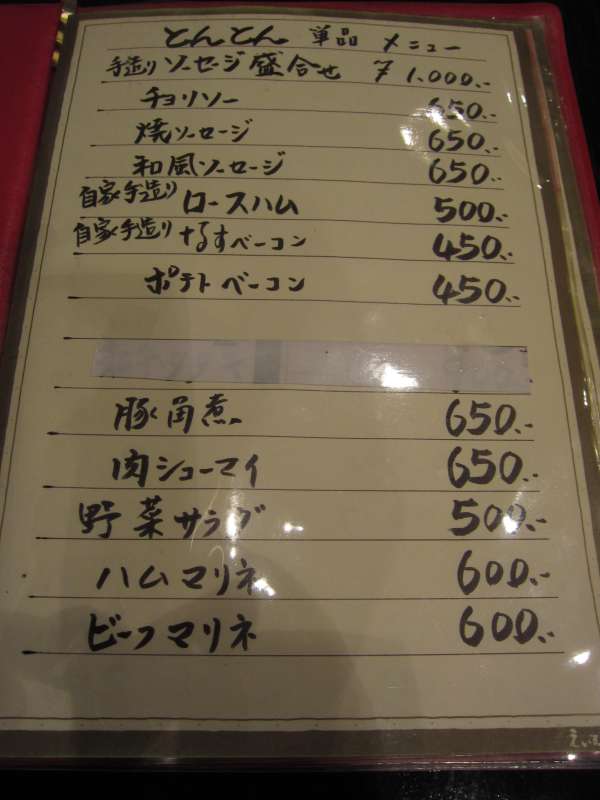 とんとん 単品 メニュー
手造り ソーセージ 盛合せ ¥1,000.-
チョリソー 650.-
焼ソーセージ 650.-
和風ソーセージ 650.-
自家手造り ロースハム 500.-
自家手造り なすベーコン 450.-
ポテトベーコン 450.-
豚角煮 650.-
肉シューマイ 650.-
野菜サラダ 500.-
ハムマリネ 600.-
ビーフマリネ 600.-